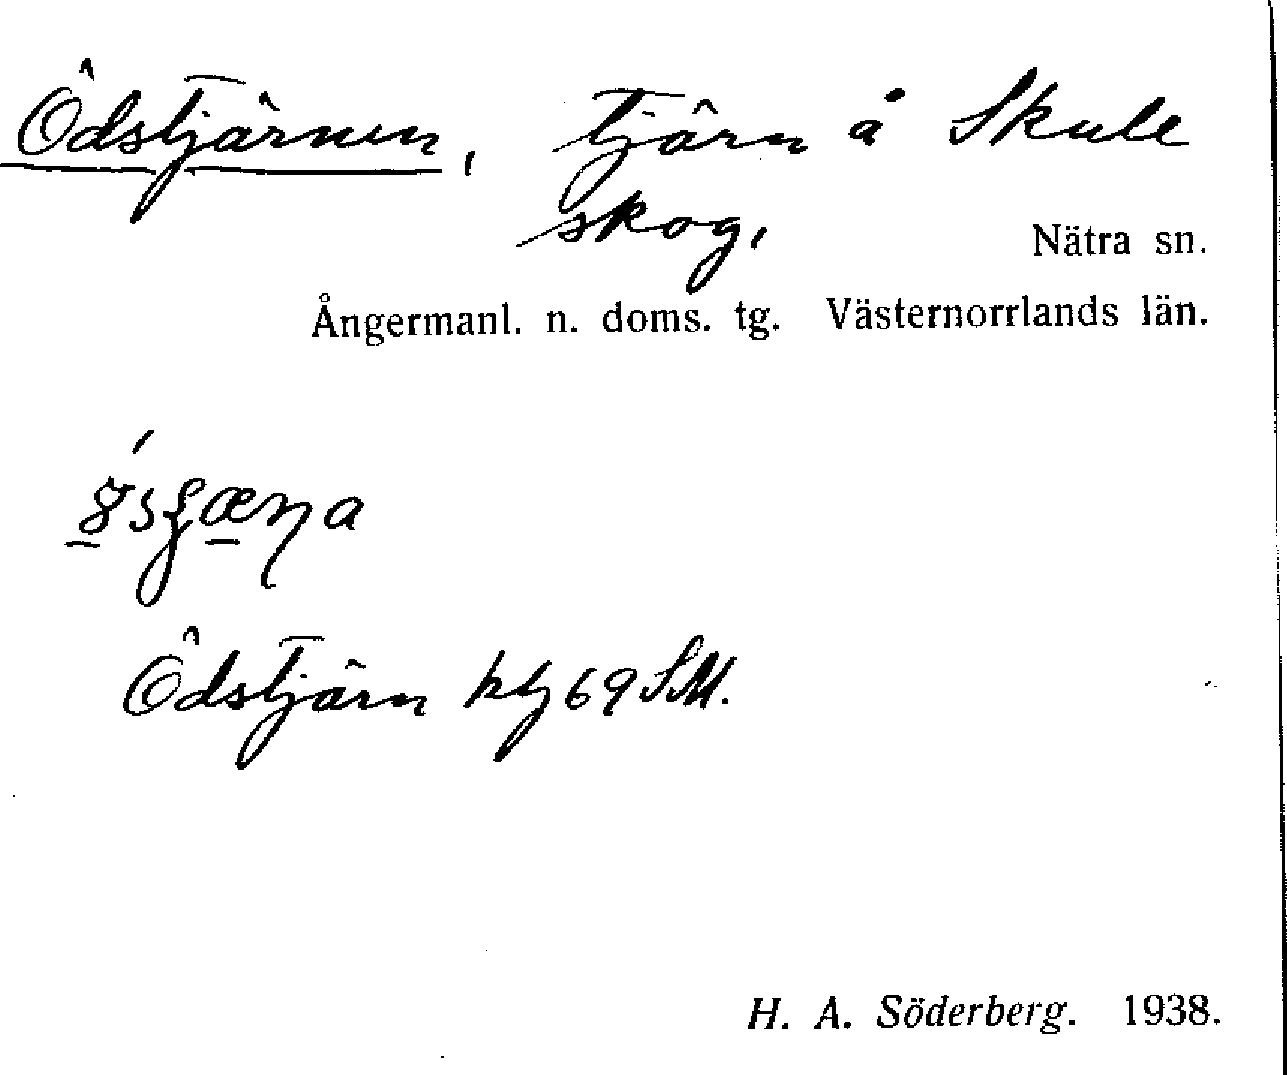 Ödstjärnen, tjärn å Skule
skog,
Nätra sn.
Ångermanl. n. doms. tg. Västernorrlands län.
Ödstjärn ktj 69 SM.
H. A. Söderberg. 1938.